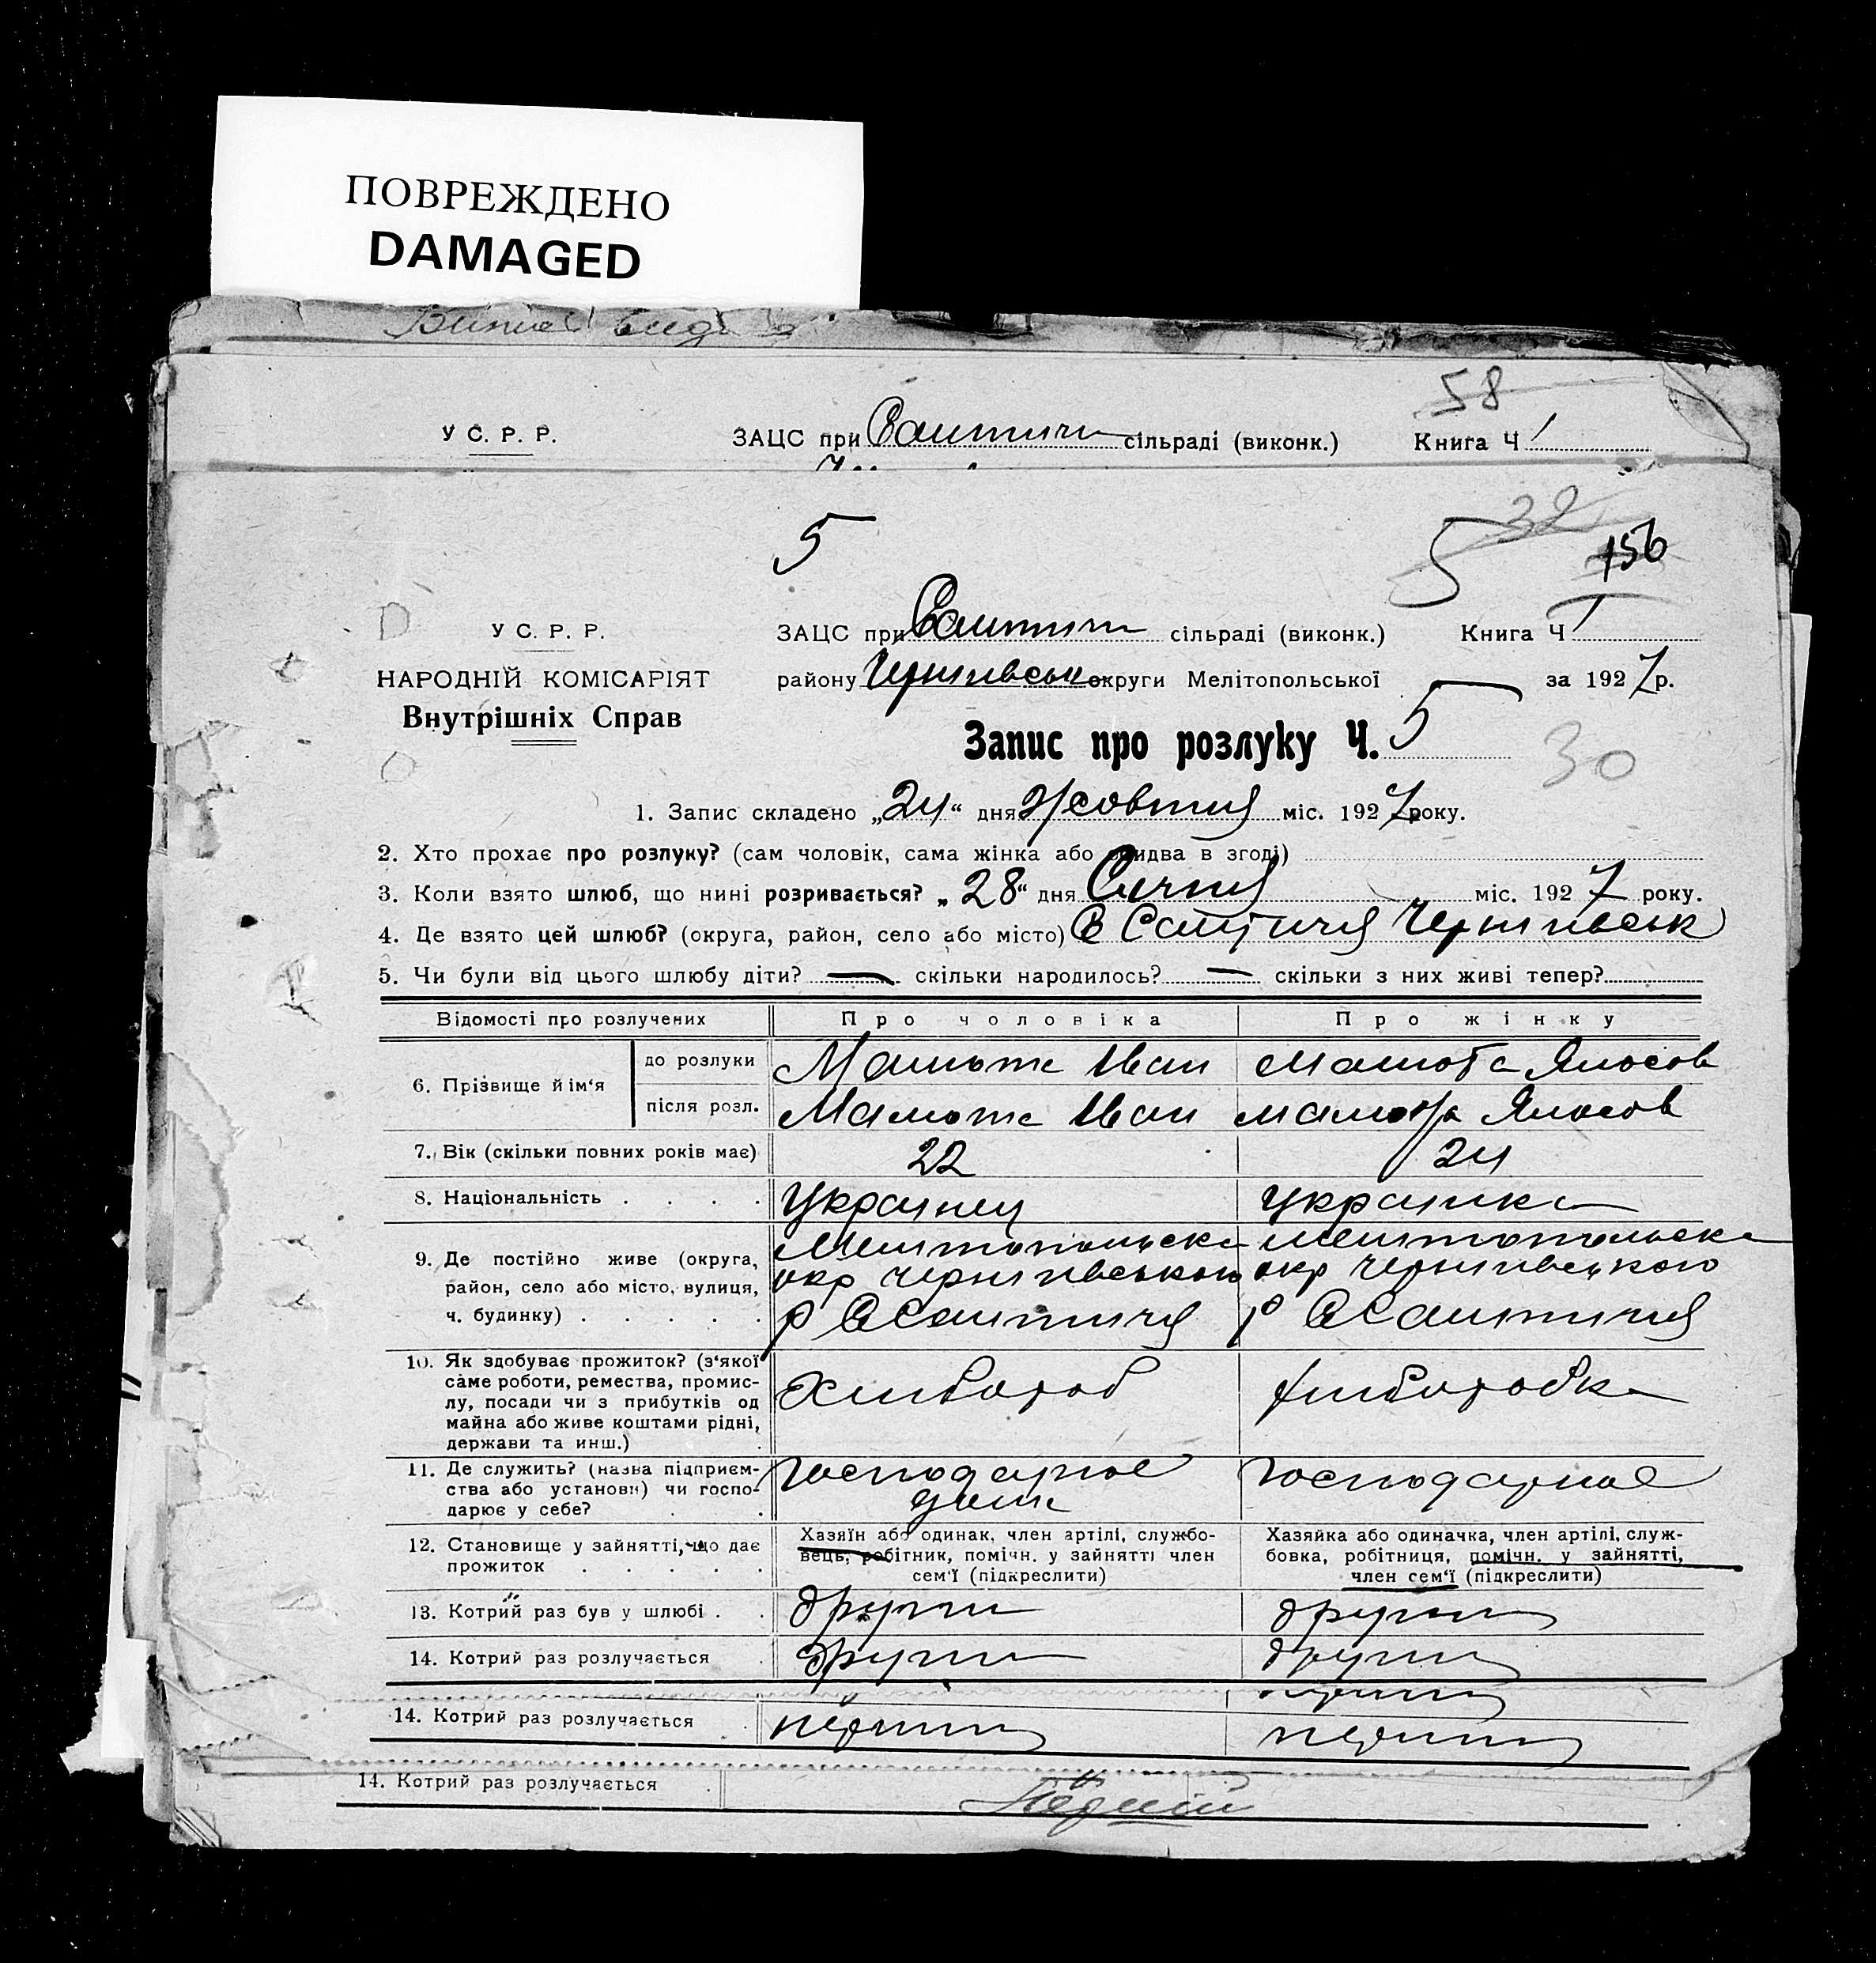 ПОВРЕЖДЕНО
DAMAGED
58
У С. Р. Р.
ЗАЦС при сільраді (виконк.) Книга Ч 1
5 5 32 156
У С. Р. Р.
ЗАЦС при сільраді (виконк.) Книга Ч 1
НАРОДНІЙ КОМІСАРІЯТ
району Чернігівськ округи Мелітопольської за 1927 р.
Внутрішніх Справ
Запис про розлуку Ч. 5
30
1. Запис складено „24“ дня Жовтня міс. 1927 року.
2. Хто прохає про розлуку? (сам чоловік, сама жінка або обидва в згоді)
3. Коли взято шлюб, що нині розривається? „28“ дня Січня міс. 1927 року.
4. Де взято цей шлюб? (округа, район, село або місто) Чернігівськ
5. Чи були від цього шлюбу діти? — скільки народилось? — скільки з них живі тепер?
Відомості про розлучених Про чоловіка Про жінку
6. Прізвище й ім‘я
до розлуки Іван
після розл. Іван
7. Вік (скільки повних років має) 22 24
8. Національність . . . . Украинец Украинка
9. Де постійно живе (округа, район, село або місто, вулиця, ч. будинку) . . . . .
окр Чернігівською
р
окр Чернігівською
р
10. Як здобуває прожиток? (з‘якої
саме роботи, ремества, промис-
лу, посади чи з прибутків од
майна або живе коштами рідні,
держави та инш.) .
Хлібороб
хліборобка
11. Де служить? (назва підприєм-
ства або установи) чи госпо-
дарює у себе? . .
12. Становище у зайнятті, що дає
прожиток . . . . .
Хазяїн або одинак, член артілі, службо-
вець, робітник, помічн. у зайнятті член
сем‘ї (підкреслити)
Хазяйка або одиначка, член артілі, служ-
бовка, робітниця, помічн. у зайнятті,
член сем‘ї (підкреслити)
13. Котрий раз був у шлюбі . . други други
14. Котрий раз розлучається . други други
14. Котрий раз розлучається . перший перший
14. Котрий раз розлучається . Перший